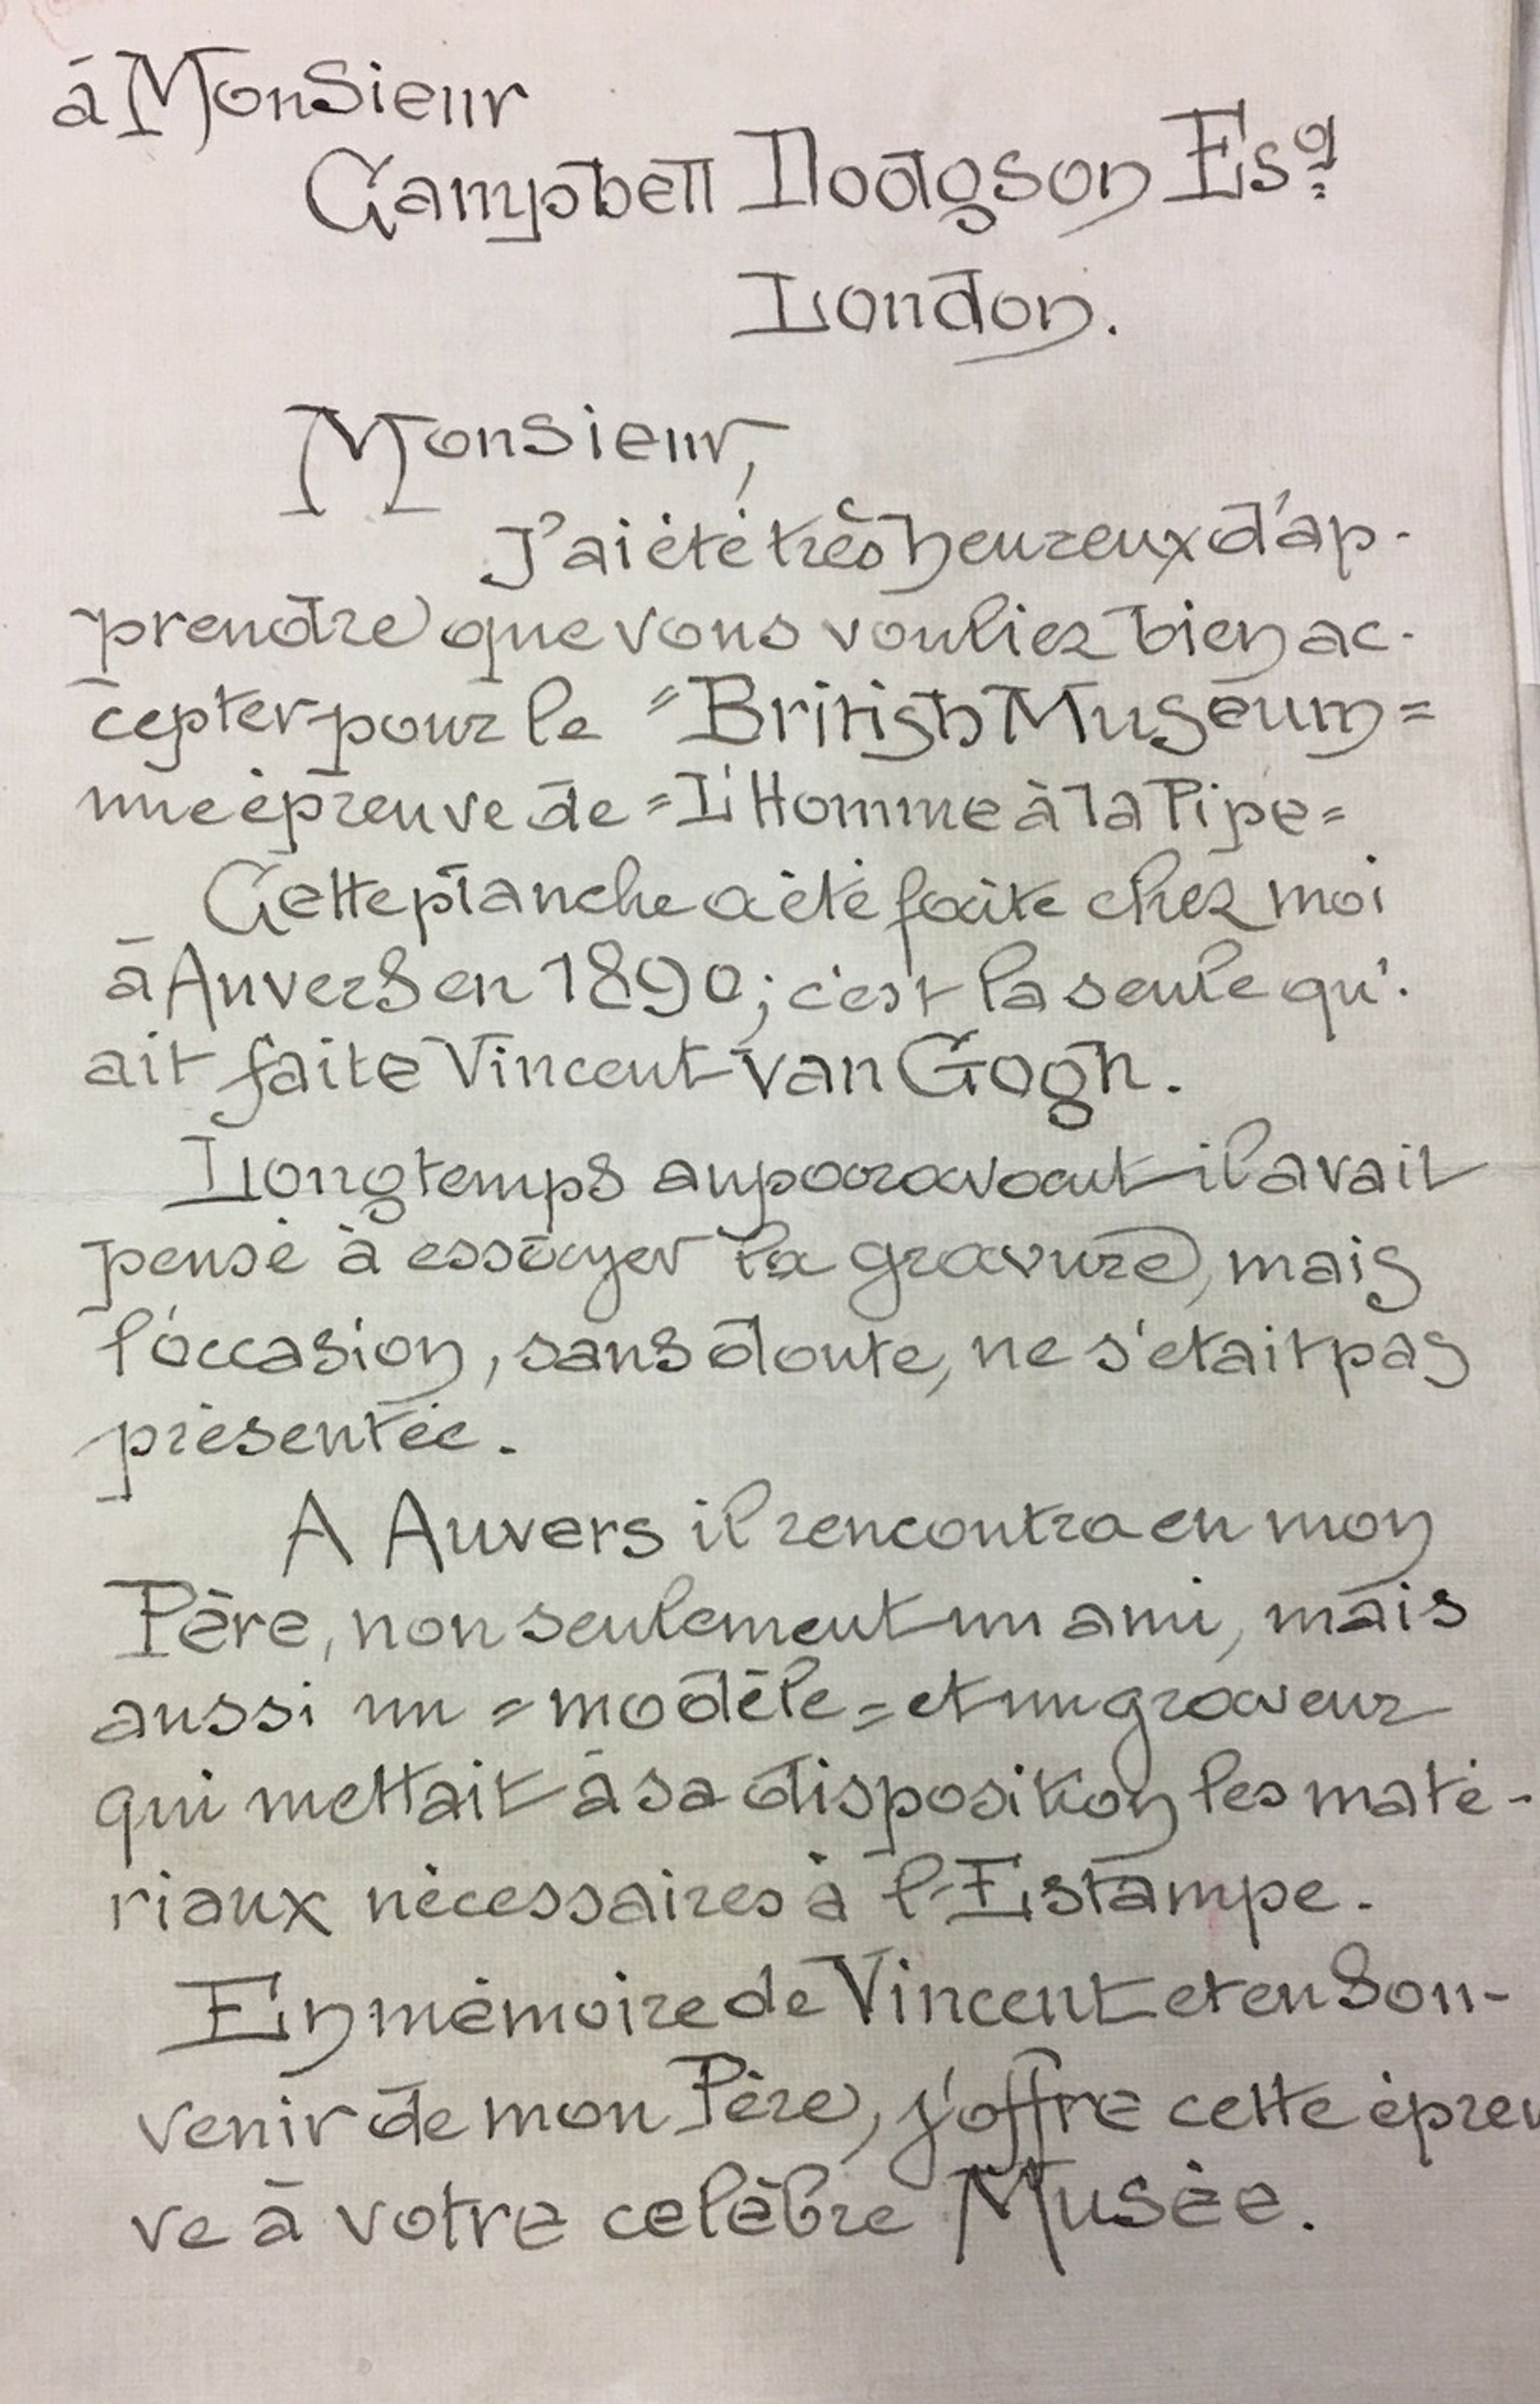 à Monsieur
Campbell Dodgson Esq.
London.
Monsieur,
J'ai été très heureux d'ap-
prendre que vous vouliez bien ac-
cepter pour le "British Museum"
une épreuve de "L'Homme à la Pipe"
Cette planche a été faite chez moi
à Auvers en 1890; c'est la seule qu'
ait faite Vincent Van Gogh.
Longtemps auparavant il avait
pensé à essayer la gravure, mais
l'occasion, sans doute, ne s'etait pas
présentée.
A Auvers il rencontra en mon
Père, non seulement un ami, mais
aussi un "modèle" et un graveur
qui mettait à sa disposition les maté-
riaux nécessaires à l'Estampe.
En mémoire de Vincent et en Sou-
venir de mon Père, j'offre cette épreu
ve à votre celèbre Musée.